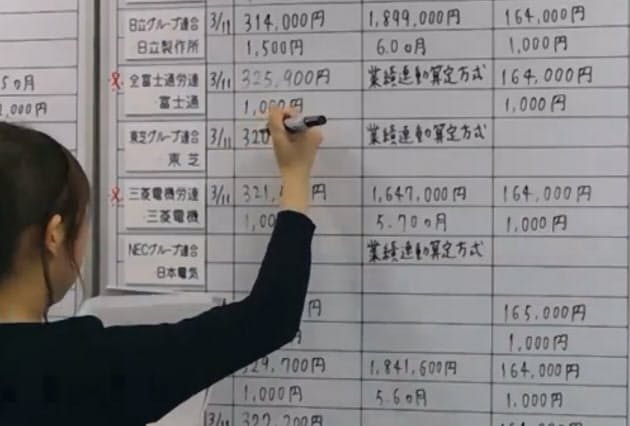 日立グループ連合 3/11 314,000円 1,899,000円 164,000円
日立製作所 1,500円 6.0ヵ月 1,000円
5ヵ月 全富士通労連 3/11 325,900円 業績連動算定方式 164,000円
,000円 富士通 1,000円 1,000円
東芝グループ連合 3/11 320 業績連動算定方式
東芝
三菱電機労連 3/11 321, 円 1,647,000円 164,000円
三菱電機 1,00 5.70ヵ月 1,000円
NECグループ連合 業績連動算定方式
日本電気
円 165,000円
1,000円
329,700円 1,841,600円 164,000円
1,000円 5.6ヵ月 1,000円
3/11